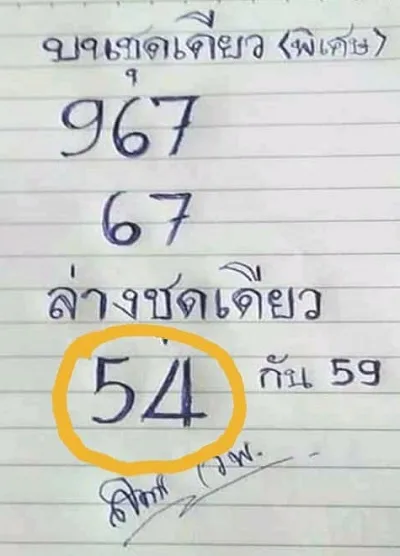 บนชุดเดียว (พิเศษ)
967
67
ล่างชุดเดียว
54 กัน 59